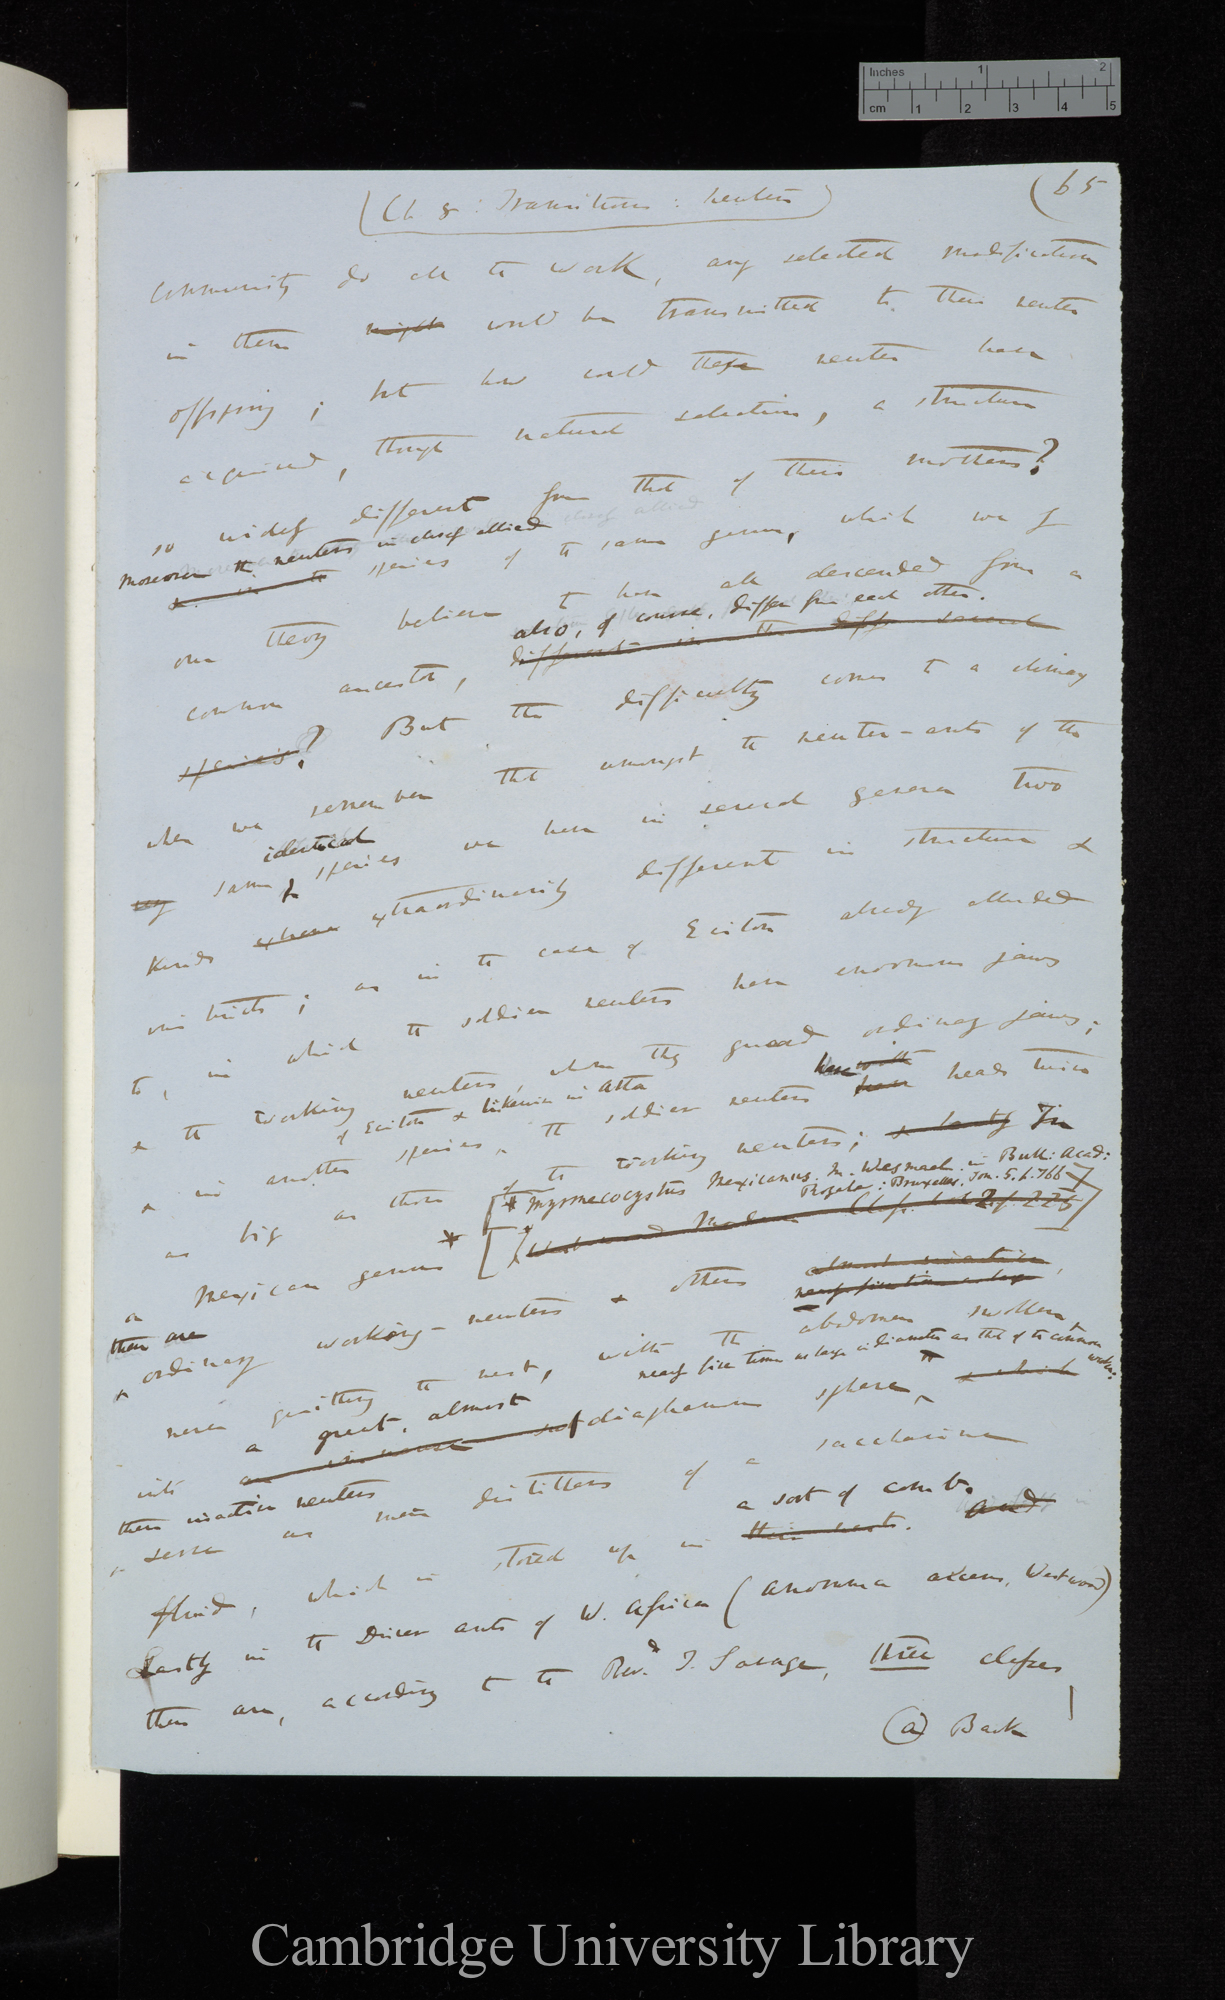 Inches 1 2
cm 1 2 3 4 5
(Ch 8: Transitions: Neuters)
(65
community do all the work, any selected modification
in them might would be transmitted to their neuter
offspring; but how could these neuters have
acquired, through natural selection, a structure
so widely different from that of their mothers?
Moreover the neuters in closely allied
in the species of the same genus, which we
our theory believe to have all descended from a
also, of course, differ from each other.
common ancestor, different in the several
species? But the difficulty comes to a climax
when we remember that amongst the neuter-ants of the
identical
very same & species we have in several genera two
kinds extraordinarily different in structure &
instincts; as in the case of Eciton already alluded
to, in which the soldier neuters have enormous jaws
& the working neuters, whom they guard ordinary jaws;
of Eciton & likewise in Atta have with
& in another species, the soldier neuters have heads twice
as big as those of the working neuters; & lastly In
[* Myrmecocystus Mexicanus. M. Wesmael in Bull: Acad:
Royale: Bruxelles. Tom. 5. p. 766]
a Mexican genus * [(Westwood Modern Class. vol 2. p. 225)]
there are
& ordinary working-neuters & others almost inactive
nearly five times as large,
never quitting the nest, with the abdomen swollen
nearly five times as large in diameter as that of the common workers:
a great, almost
into an immense diaphanous sphere, & which
these inactive neuters
serve as mere distillers of a saccharine
a sort of comb.
fluid, which is stored up in their nests. and
Lastly in the Driver ants of W. Africa (Anomma arcens, Westwood)
there are, according to the Revd. T. Savage, three classes
(a) Back
Cambridge University Library